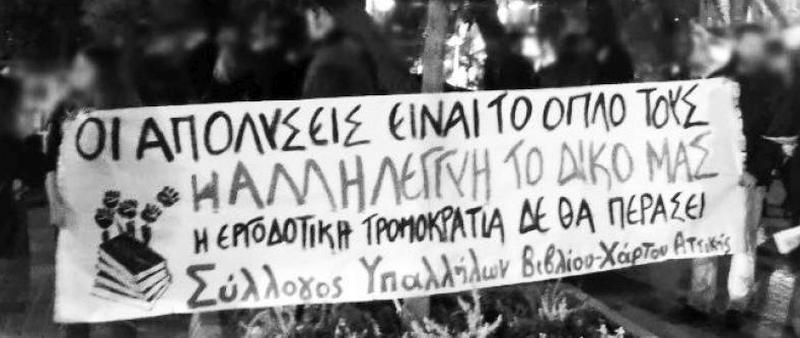 ΟΙ ΑΠΟΛΥΣΕΙΣ ΕΙΝΑΙ ΤΟ ΟΠΛΟ ΤΟΥΣ
Η ΑΛΛΗΛΕΓΓΥΗ ΤΟ ΔΙΚΟ ΜΑΣ
Η ΕΡΓΟΔΟΤΙΚΗ ΤΡΟΜΟΚΡΑΤΙΑ ΔΕ ΘΑ ΠΕΡΑΣΕΙ
Σύλλογος Υπαλλήλων Βιβλίου-Χάρτου Αττικής